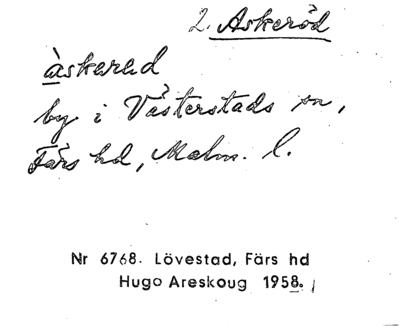 2. Askeröd
àskarad
by i Västerstads sn,
Färs hd, Malm. l.
Nr 6768. Lövestad, Färs hd
Hugo Areskoug 1958.